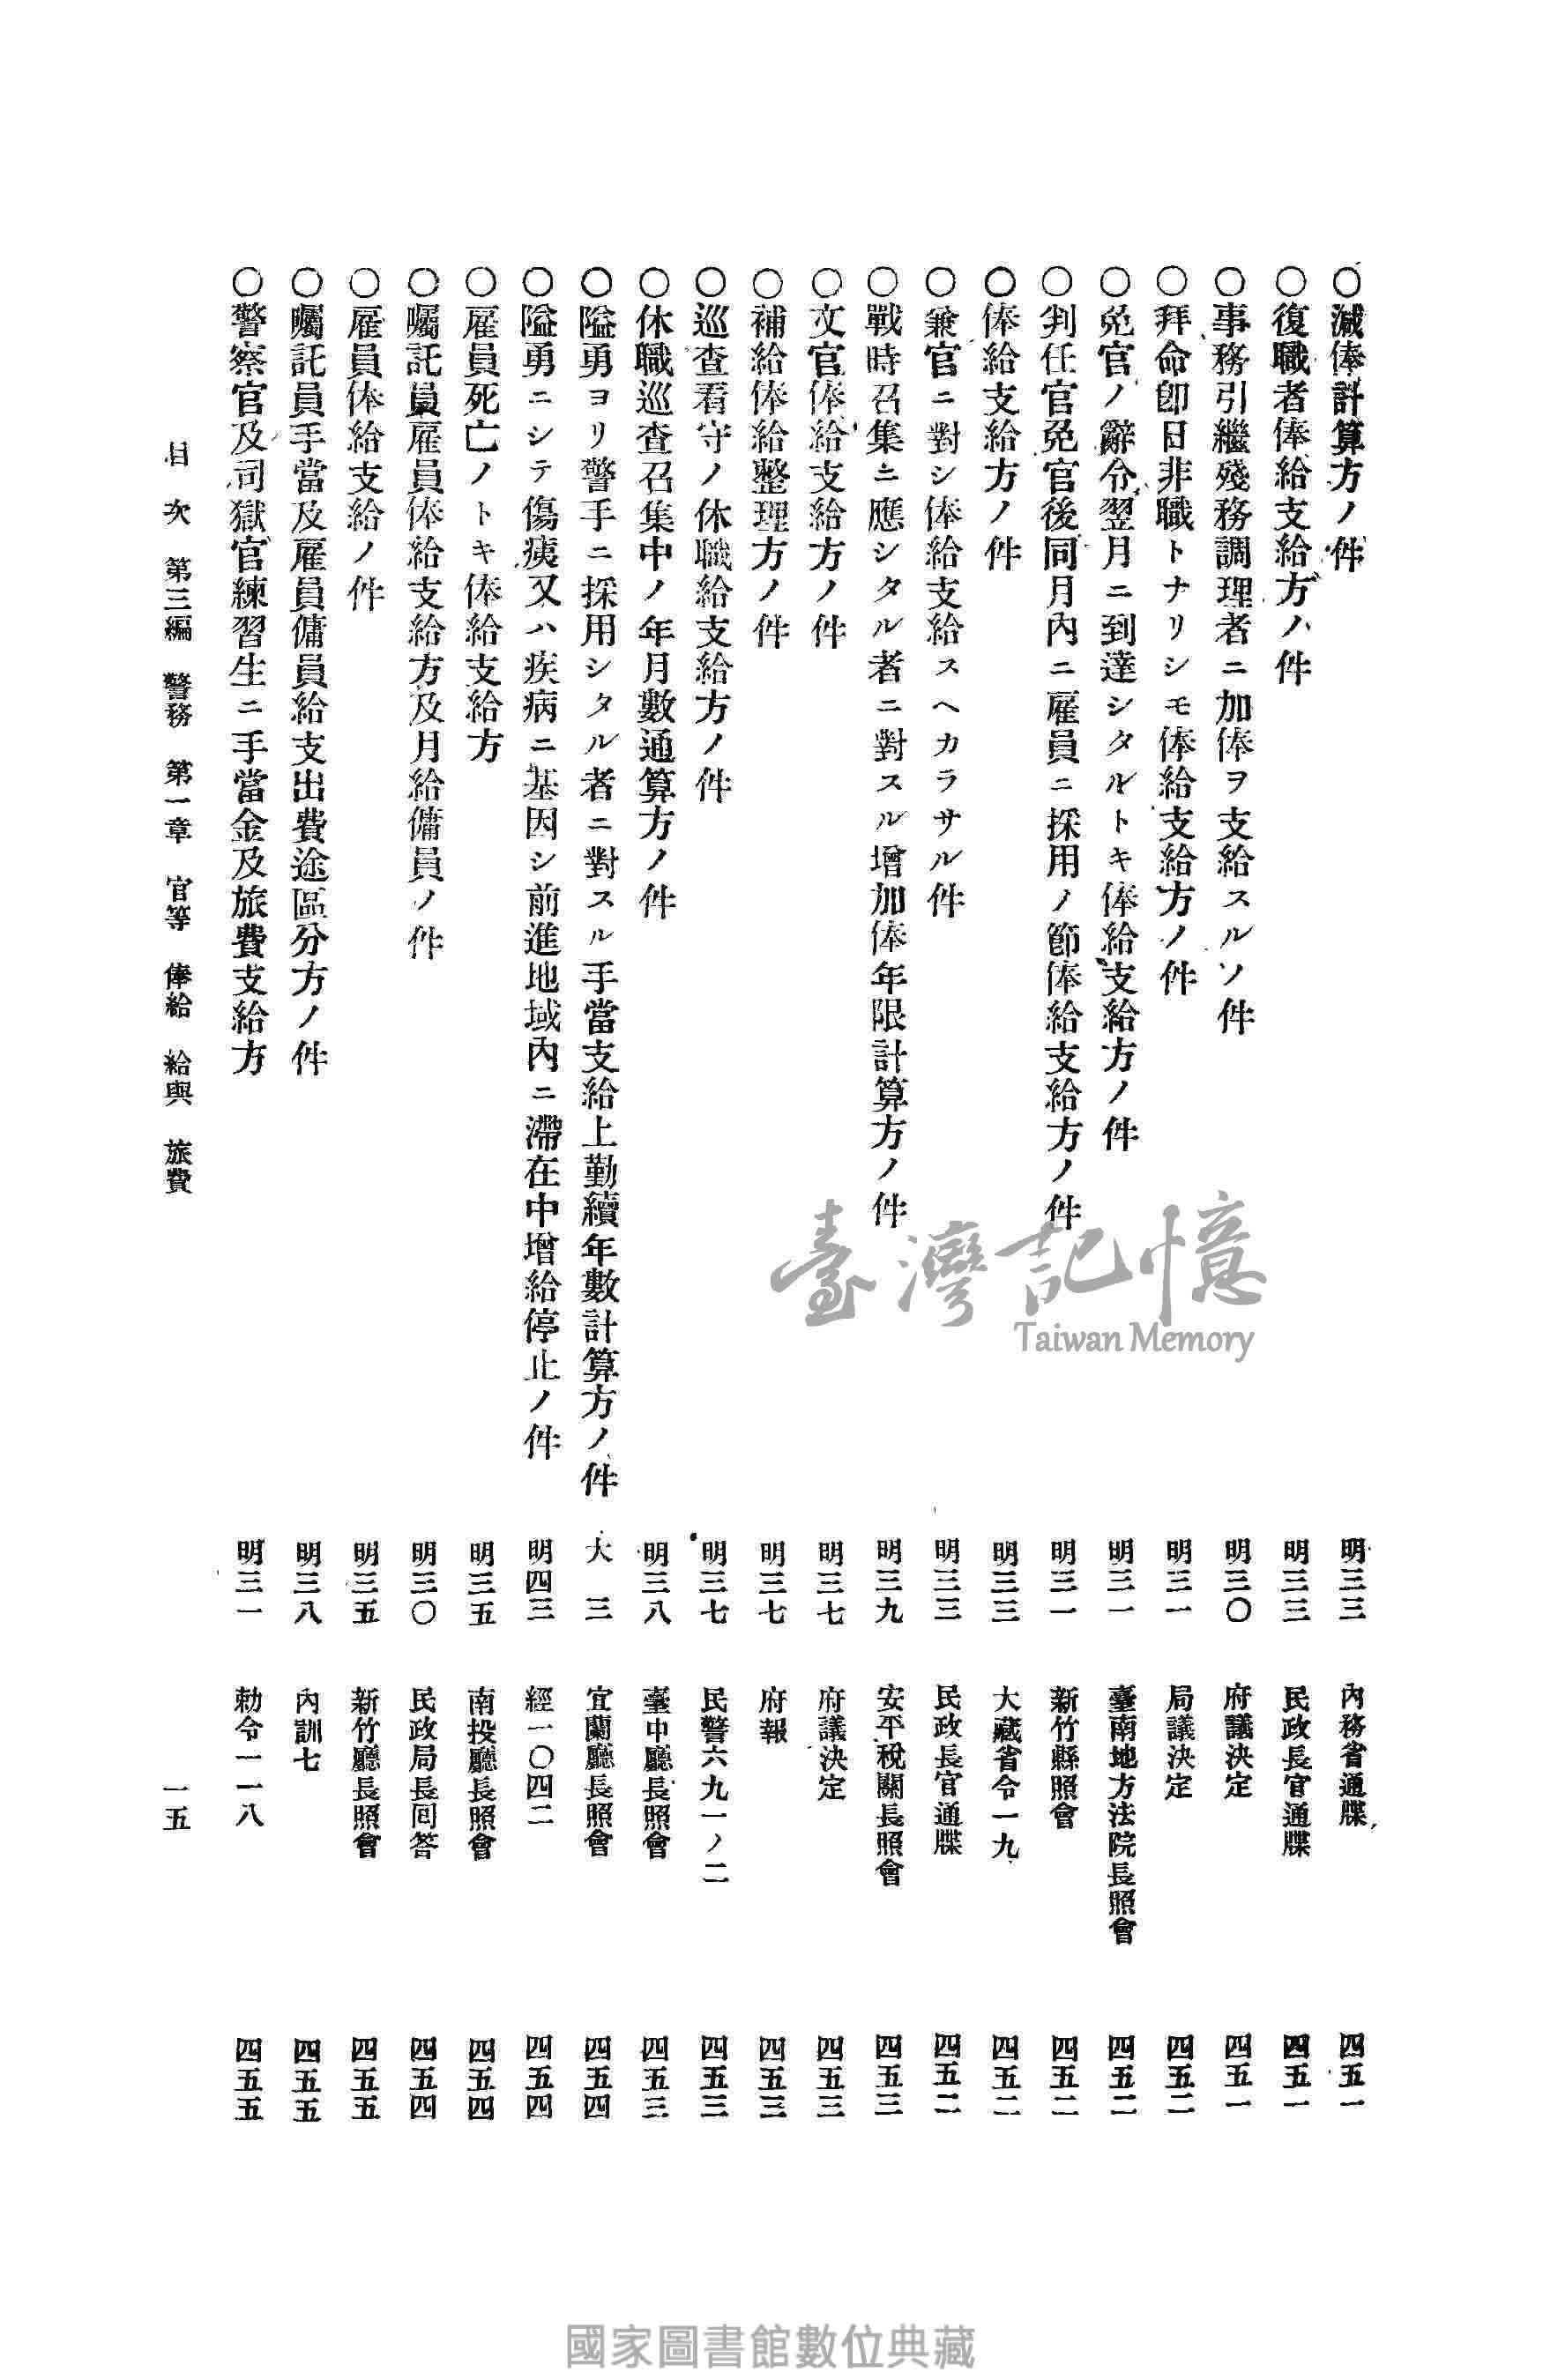 ○減俸計算方ノ件 明三三 內務省通牒 四五一
○復職者俸給支給方ノ件 明三三 民政長官通牒 四五一
○事務引繼殘務調理者ニ加俸ヲ支給スルノ件 明三〇 府議決定 四五一
○拜命卽日非職トナリシモ俸給支給方ノ件 明三一 局議決定 四五二
○免官ノ辭令翌月ニ到達シタルトキ俸給支給方ノ件 明三一 臺南地方法院長照會 四五二
○判任官免官後同月內ニ雇員ニ採用ノ節俸給支給方ノ件 明三一 新竹縣照會 四五二
○俸給支給方ノ件 明三三 大藏省令一九 四五二
○兼官ニ對シ俸給支給スヘカラサル件 明三三 民政長官通牒 四五二
○戰時召集ニ應シタル者ニ對スル增加俸年限計算方ノ件 明三九 安平稅關長照會 四五三
○文官俸給支給方ノ件 明三七 府議決定 四五三
○補給俸給整理方ノ件 明三七 府報 四五三
○巡查看守ノ休職給支給方ノ件 明三七 民警六九一ノ二 四五三
○休職巡查召集中ノ年月數通算方ノ件 明三八 臺中廳長照會 四五三
○隘勇ヨリ警手ニ採用シタル者ニ對スル手當支給上勤續年數計算方ノ件 大三 宜蘭廳長照會 四五四
○隘勇ニシテ傷痍又ハ疾病ニ基因シ前進地域內ニ滯在中增給停止ノ件 明四三 經一〇四二 四五四
○雇員死亡ノトキ俸給支給方 明三五 南投廳長照會 四五四
○囑託員雇員俸給支給方及月給傭員ノ件 明三〇 民政局長回答 四五四
○雇員俸給支給ノ件 明三五 新竹廳長照會 四五五
○囑託員手當及雇員傭員給支出費途區分方ノ件 明三八 內訓七 四五五
○警察官及司獄官練習生ニ手當金及旅費支給方 明三一 勅令一一八 四五五
目次 第三編 警務 第一章 官等 俸給 給與 旅費 一五
臺灣記憶
Taiwan Memory
國家圖書館數位典藏